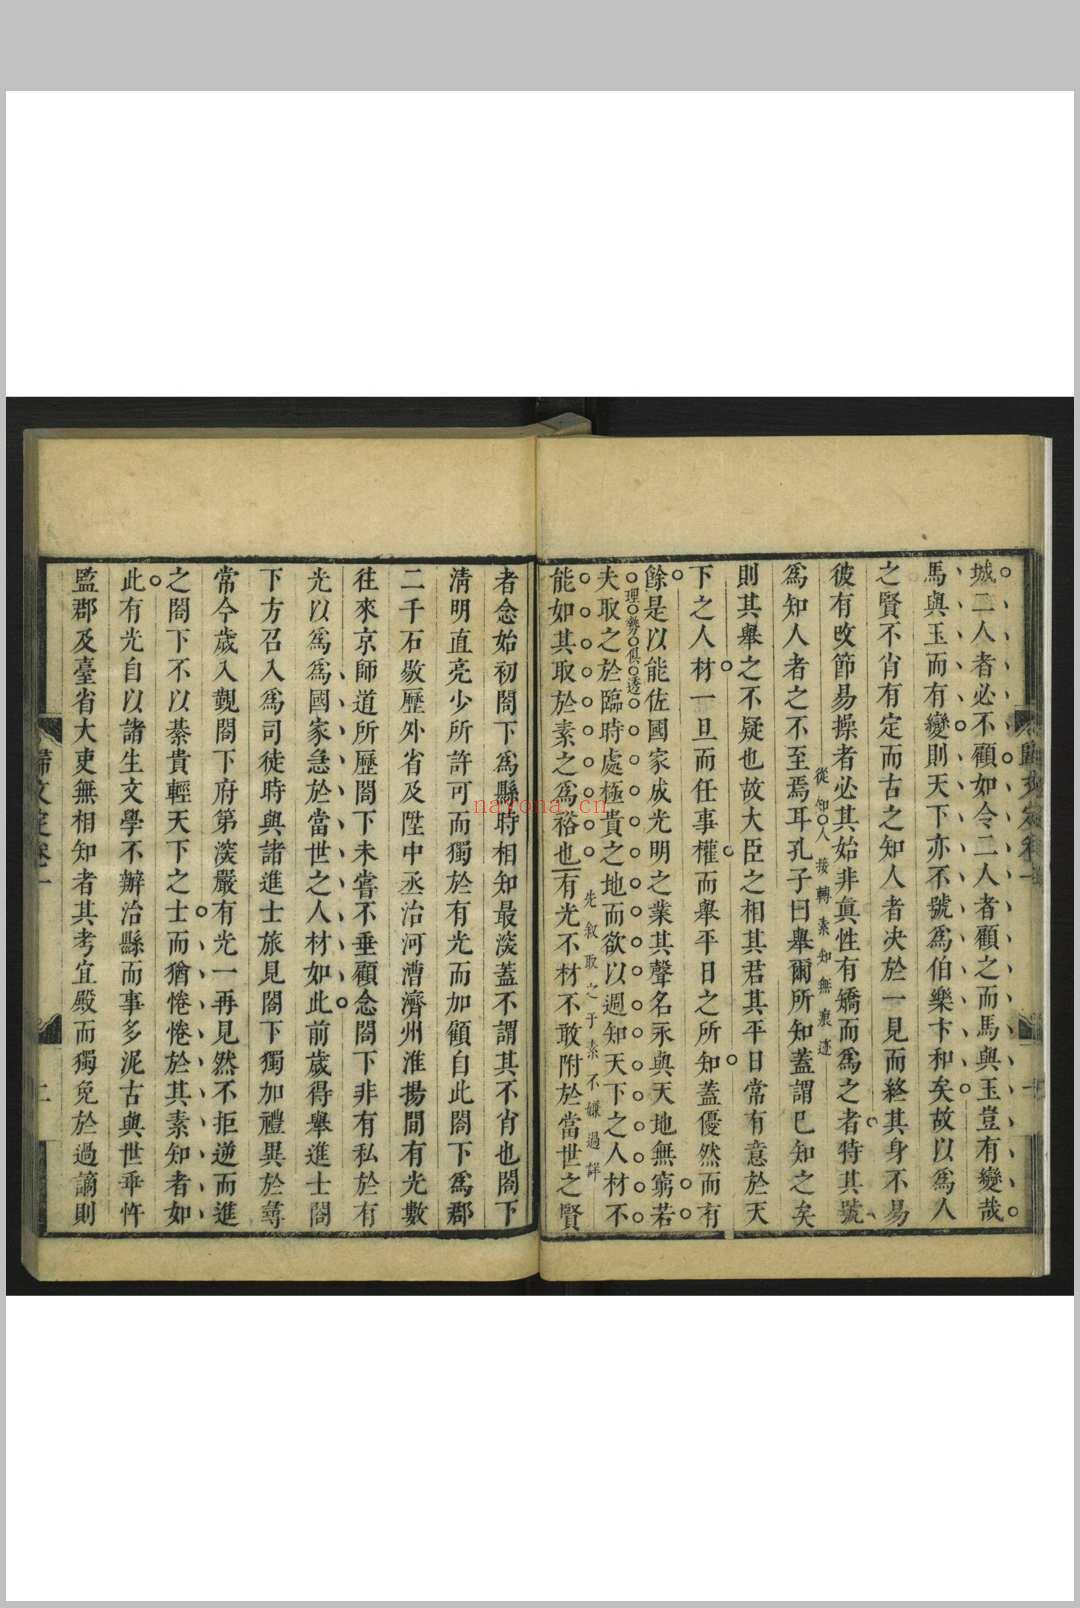 城二人者必不顧如令二人者顧之而馬與玉豈有變哉
馬與玉而有變則天下亦不號為伯樂卞和矣故以為人
之賢不肖有定而古之知人者決於一見而終其身不易
彼有攺節易操者必其始非眞性有矯而為之者特其號
從知人接轉素知無痕迹
為知人者之不至焉耳孔子曰舉爾所知蓋謂已知之矣
則其舉之不疑也故大臣之相其君其平日常有意於天
下之人材一旦而任事權而舉平日之所知蓋優然而有
餘是以能佐國家成光明之業其聲名永與天地無窮若
理勢俱透
夫取之於臨時處極貴之地而欲以週知天下之人材不
先叙取之于素不嫌過詳
能如其取於素之為裕也有光不材不敢附於當世之賢
者念始初閤下為縣時相知最深蓋不謂其不肖也閤下
清明直亮少所許可而獨於有光而加顧自此閤下為郡
二千石敭歷外省及陞中丞治河漕濟州淮揚間有光數
往來京師道所歷閤下未嘗不垂顧念閤下非有私於有
光以為為國家急於當世之人材如此前歲得舉進士閤
下方召入為司徒時與諸進士旅見閤下獨加禮異於尋
常今歲入覲閤下府第深嚴有光一再見然不拒逆而進
之閤下不以綦貴輕天下之士而猶惓惓於其素知者如
此有光自以諸生文學不辦治縣而事多泥古與世乖忤
監郡及臺省大吏無相知者其考宜殿而獨免於過謫則
歸文定卷一
nayona.cn